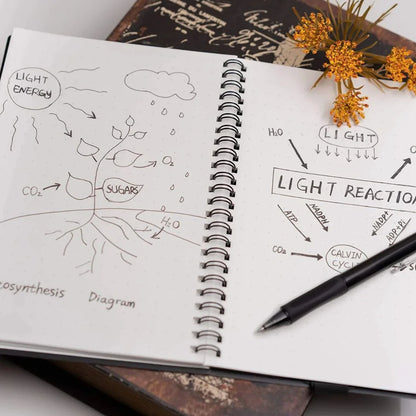 LIGHT
ENERGY
O₂
CO₂
SUGARS
H₂O
osynthesis Diagram
H₂O
LIGHT
LIGHT REACTION
ATP
NADPH
NADP+
ADP+Pi
CO₂
CALVIN
CYCLE